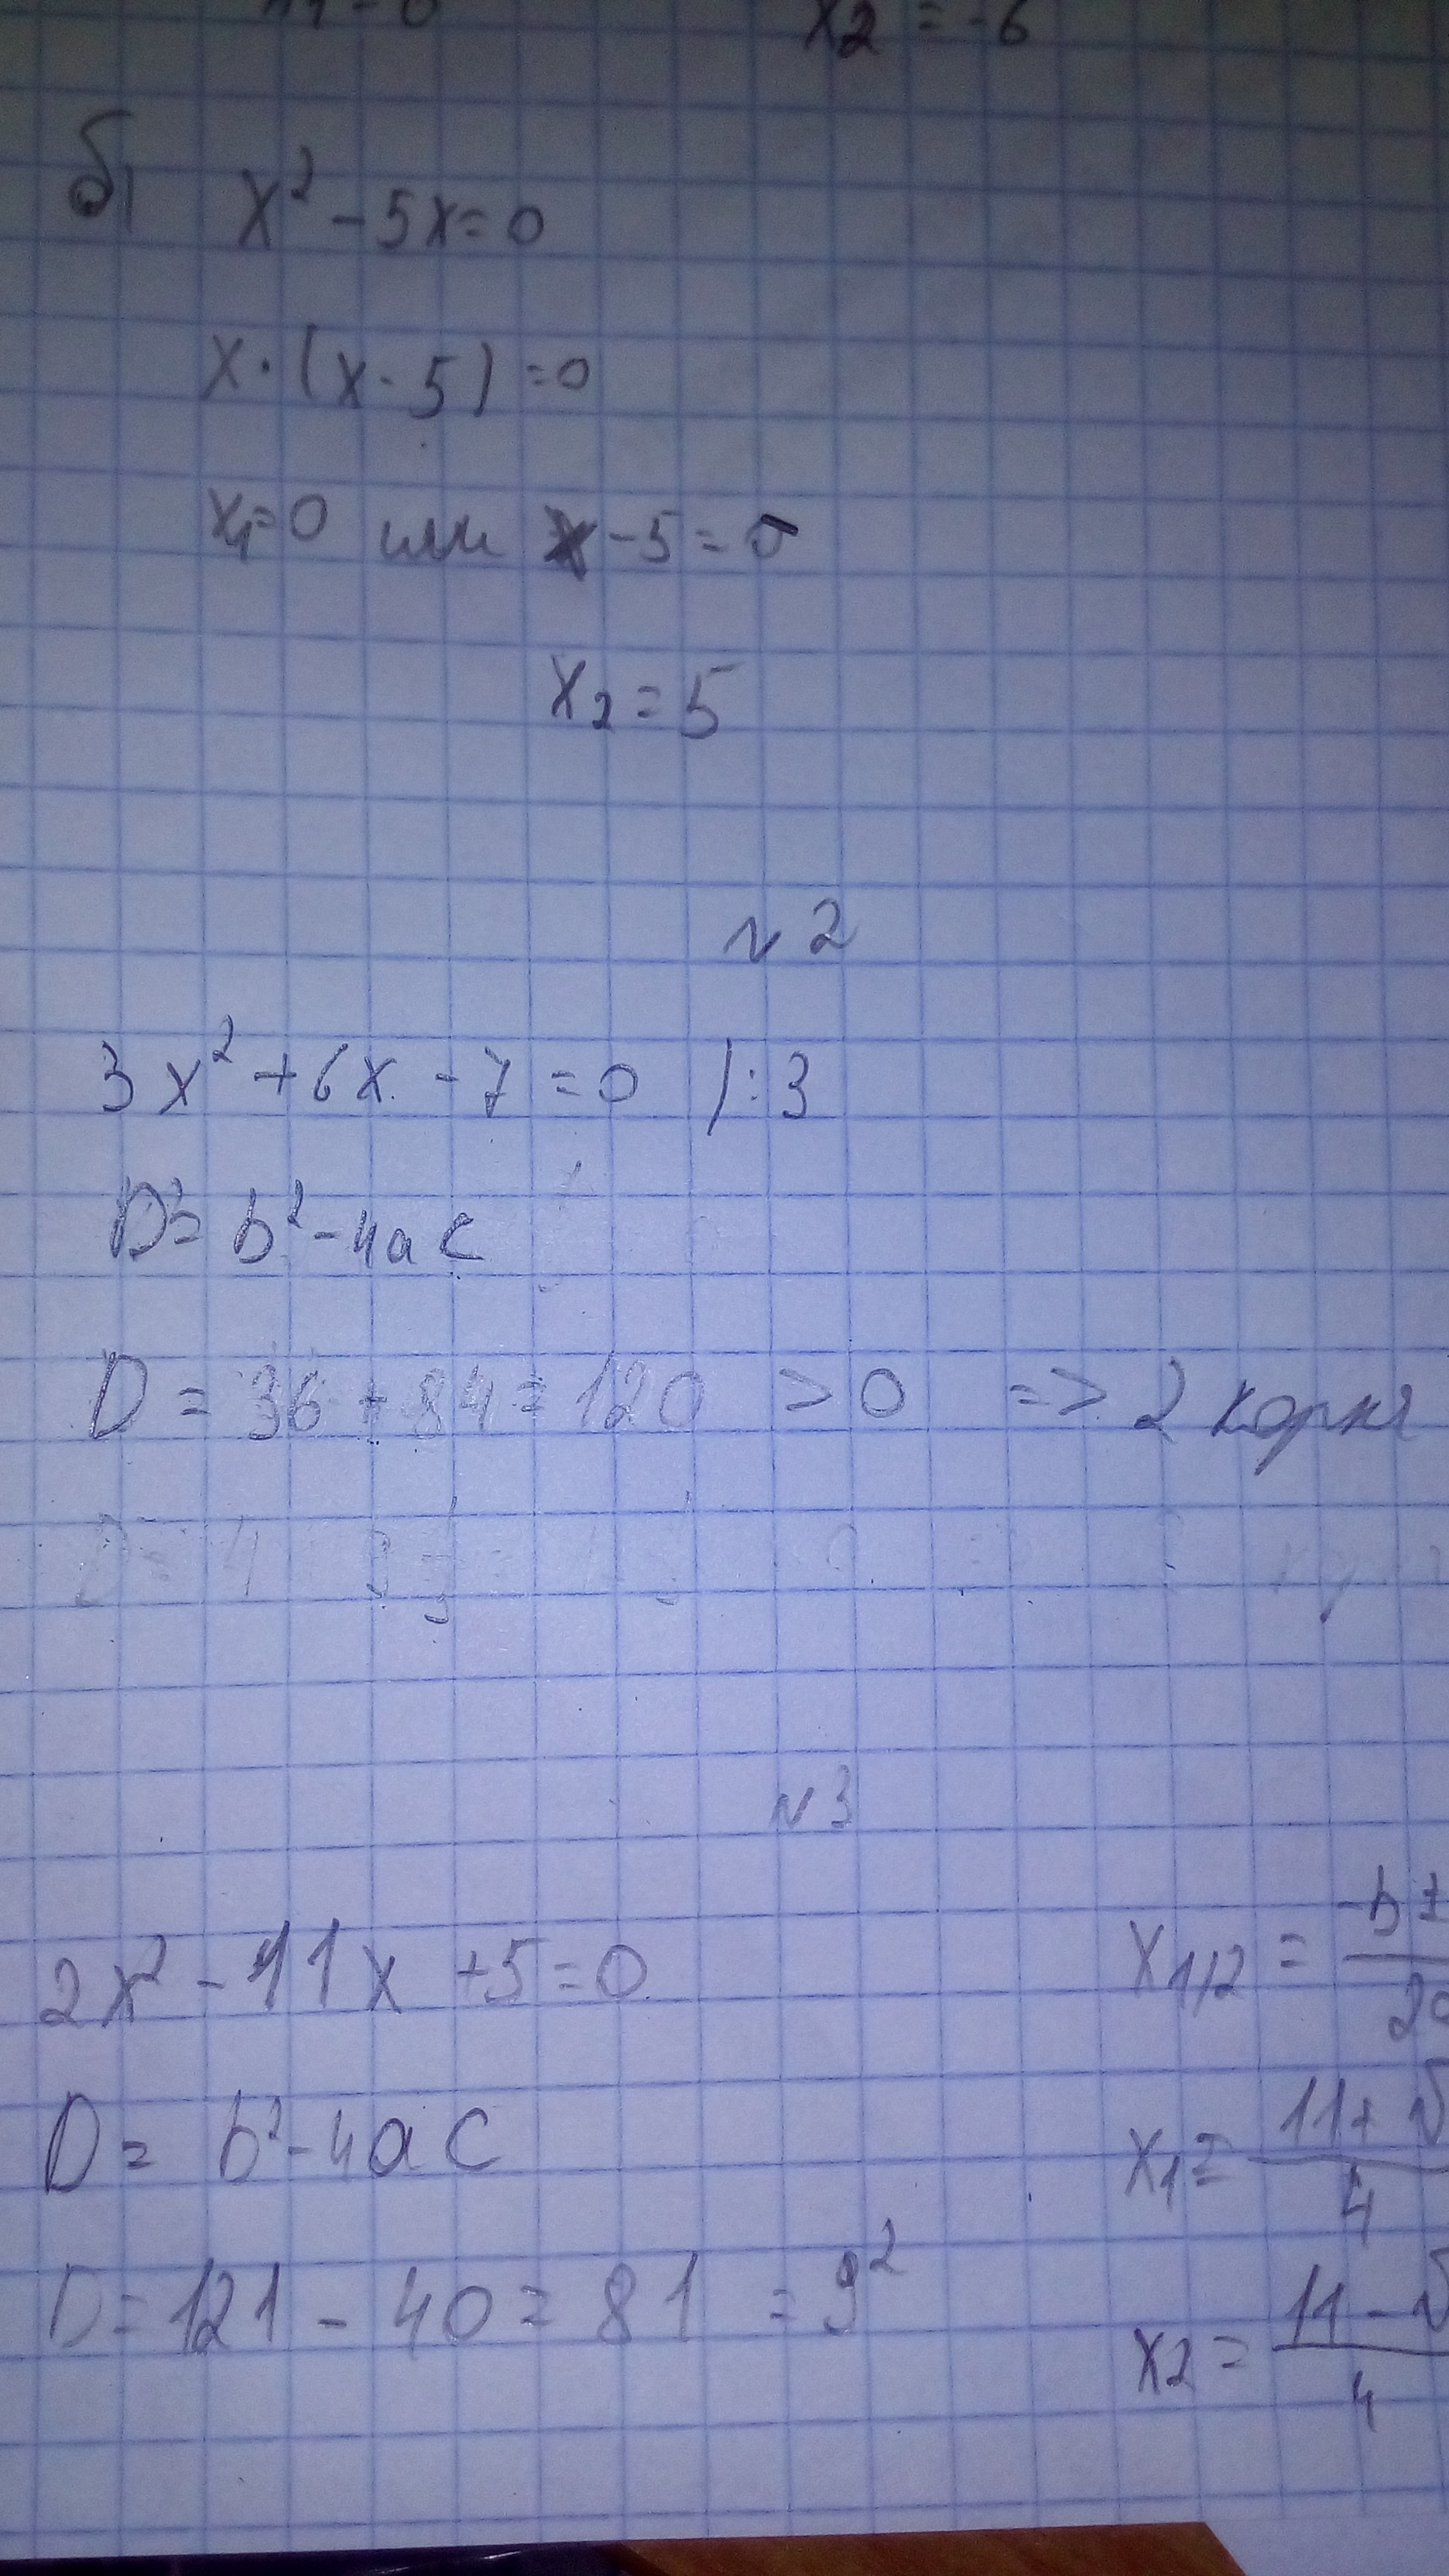 x2 = -6
б) x² - 5x = 0
x · (x - 5) = 0
x1 = 0 или x - 5 = 0
x2 = 5
N 2
3x² + 6x - 7 = 0 | : 3
D = b² - 4ac
D = 36 + 84 = 120 > 0 => 2 корня
N 3
2x² - 11x + 5 = 0
x1/2 = -b ±
D = b² - 4ac
x1 = 11 + √ / 4
D = 121 - 40 = 81 = 9²
x2 = 11 - √ / 4